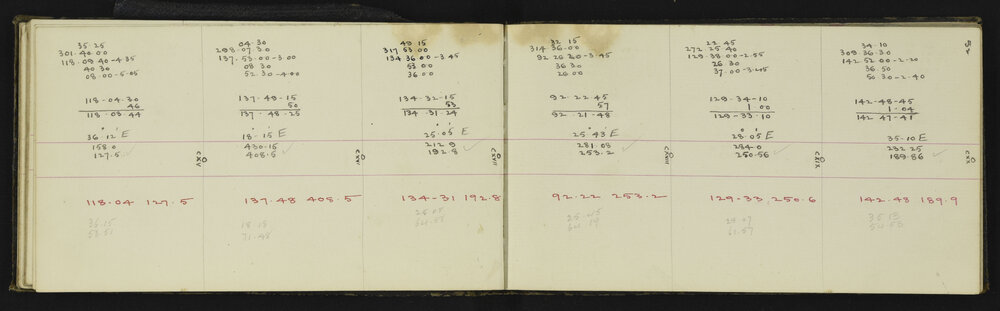 35·25
301·40·00
118·09·40-4·35
40·30
08·00-5·05
118-04·30
46
118·03·44
36·12 E
158·0
127·5
CXV
118·04 127·5
36·15
04·30
298·07·30
137·53·00-3·00
08·30
52·30-4·00
137-49-15
50
137·48·25
18-15 E
430·15
408·5
CXVI
137·48 408·5
18·15
71·45
49·15
317·53·00
134·36·00-3·45
53·00
36·00
134-32-15
53
134·31·24
25·05 E
212·9
192·8
CXVII
134-31 192·8
25·05
32·15
314·36·00
92·26·30-3·45
36·30
26·00
92·22·45
57
92·21-48
25·43 E
281·03
253·2
CXVIII
92·22 253·2
25·45
22·45
272·25·40
129·38·00-2·55
26·30
37·00-3·205
129-34-10
1·00
129-33·10
28·05 E
284·0
250·56
CXIX
129-33 250·6
61·57
54
34·10
309·36·30
142·52·00-2·20
36·50
50·30-2·40
142·48-45
1·04
142·47-41
35-10 E
232·25
189·86
CXX
142·43 189·9